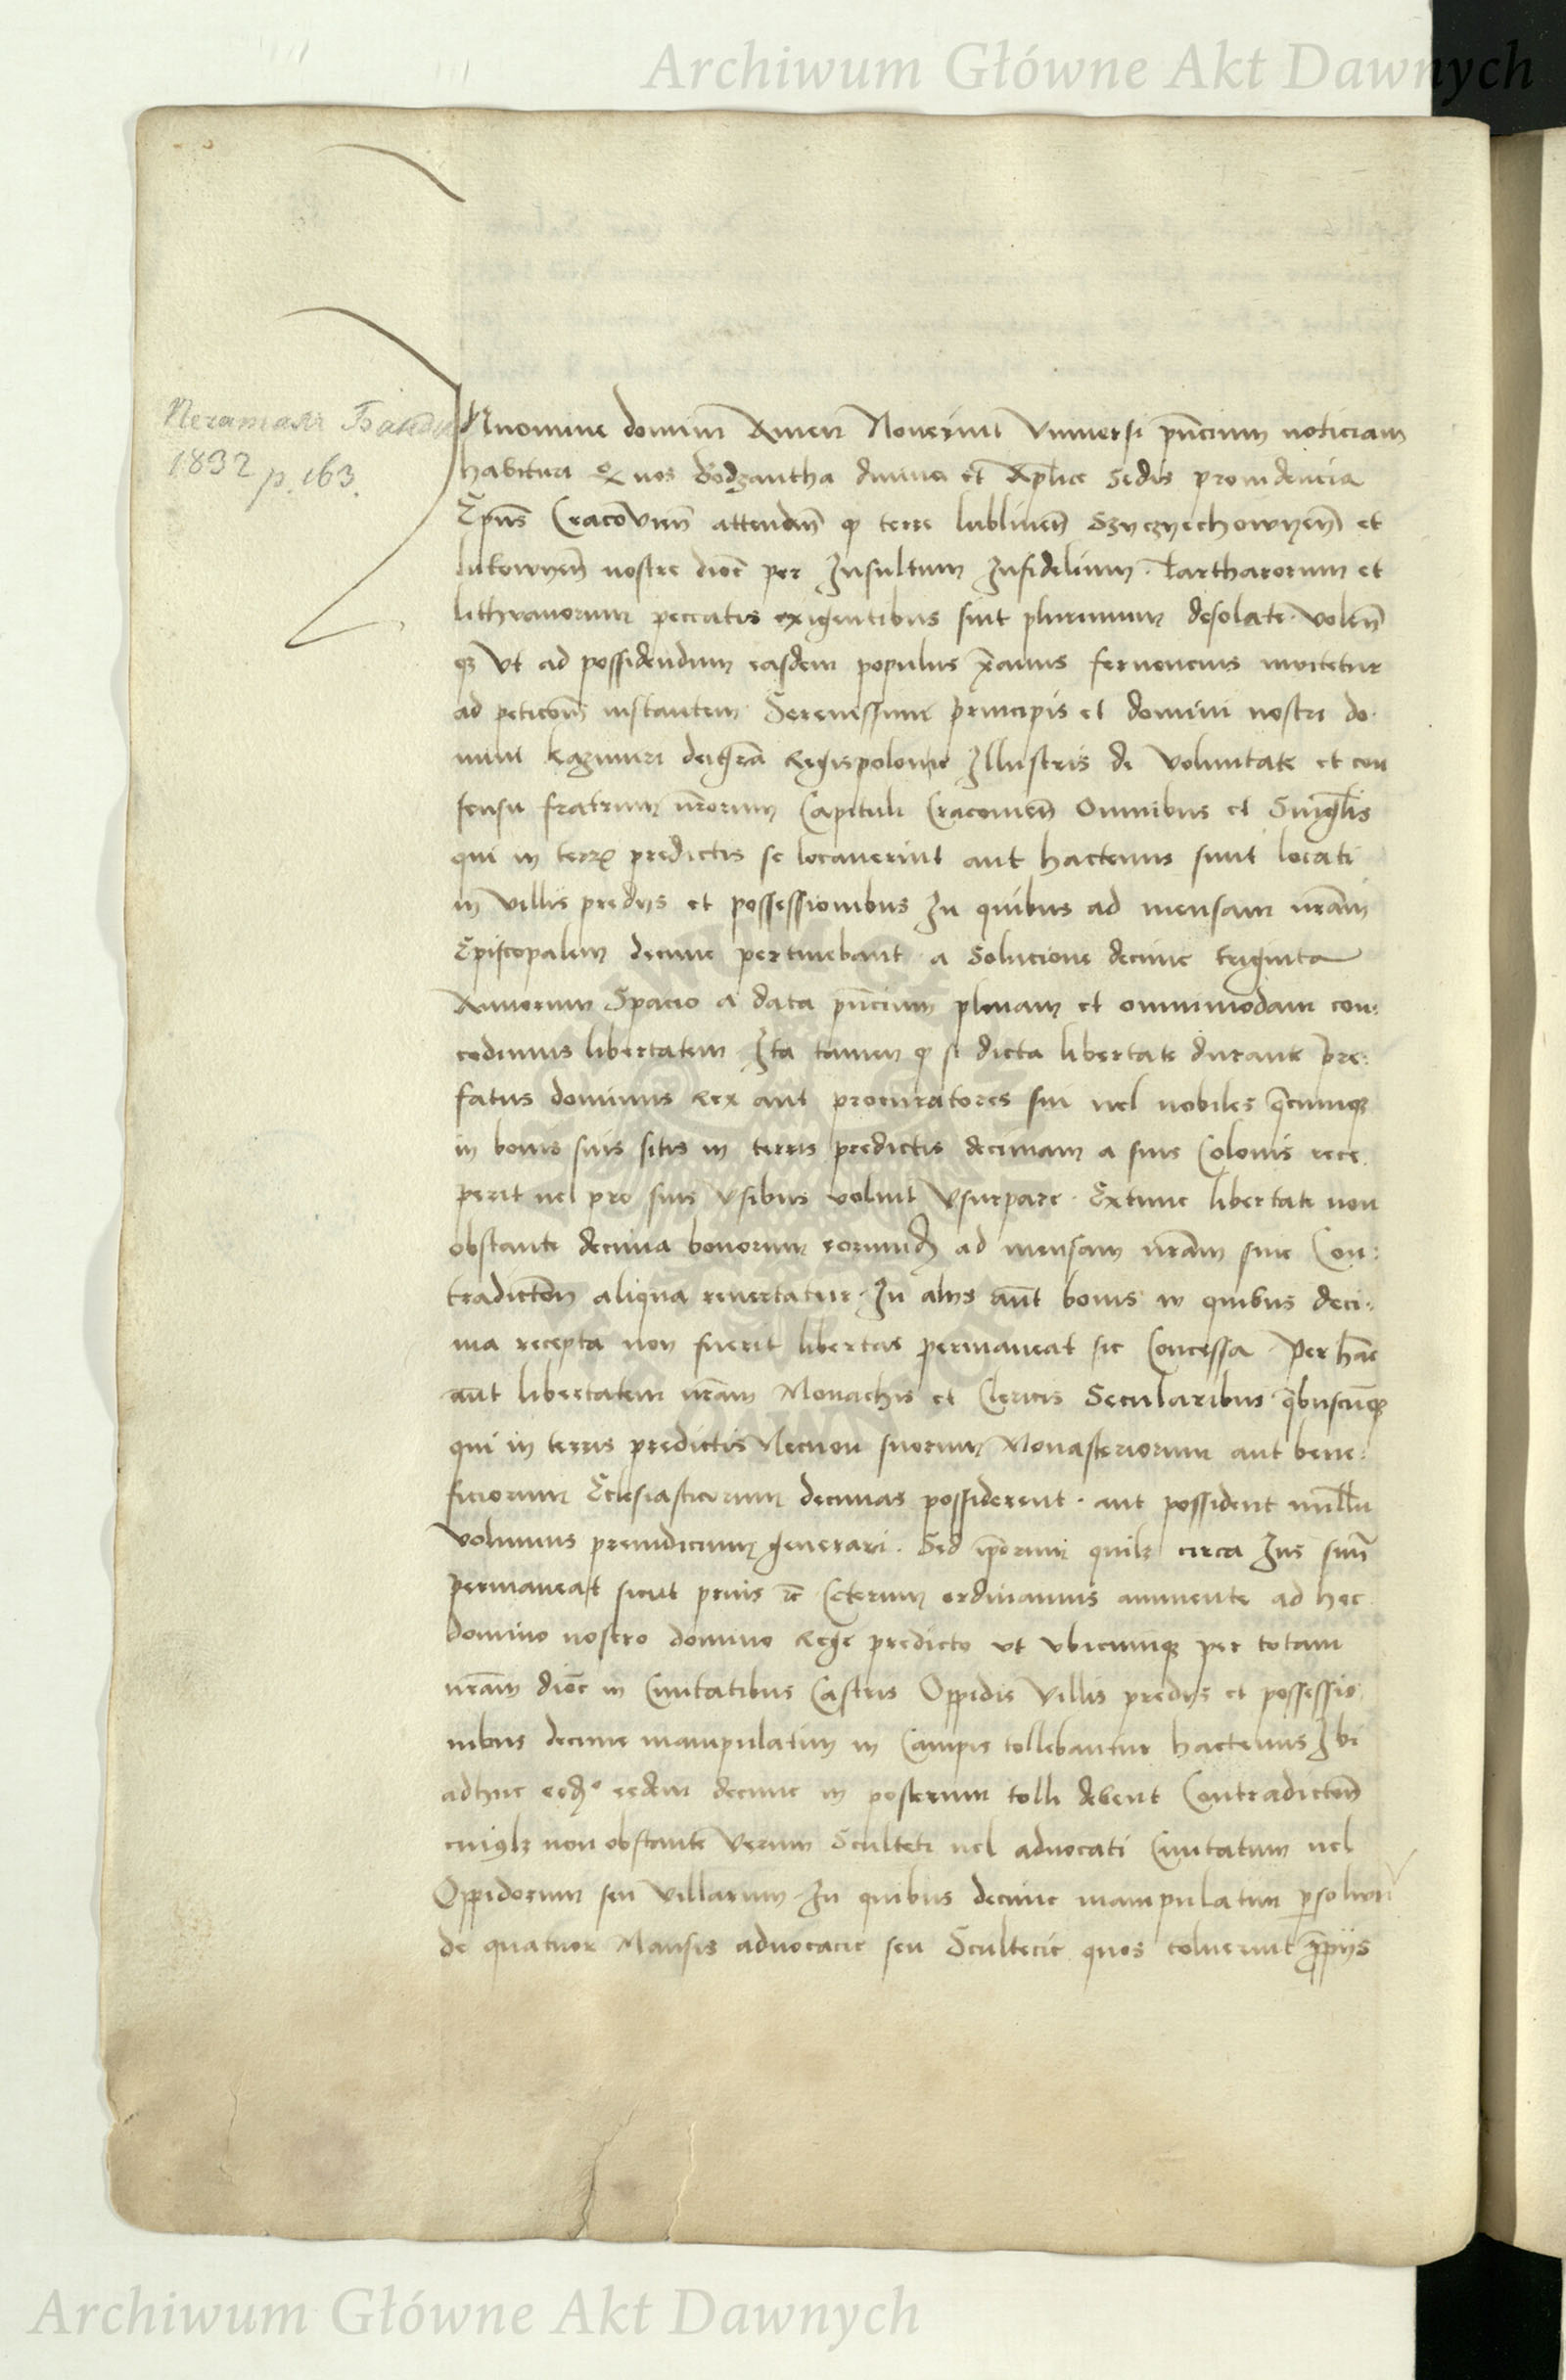 Archiwum Główne Akt Dawnych
Печаталъ Банди
1832 p. 163.
In nomine domini Amen Noverint Universi pñcium noticiam
habituri Q nos Bodzantha divina et Aplice Sedis providencia
Epus Cracovien attenden q terre lublinen Szyczyechowyen et
lukowyen nostre dioc per Insultum Infidelium Tartharorum et
lithvanorum peccatis exigentibus sint plurimum desolate volen
q3 vt ad possidendum easdem populus xpanus fervencius invitetur
ad peticom instantem Serenissimi principis et domini nostri do
mini kazimiri dei gra Regis polonie Illustris de voluntate et con
sensu fratrum nrorum Capituli Cracovien Omnibus et Singlis
qui in terris predictis se locaverint aut hactenus sunt locati
in villis predijs et possessionibus In quibus ad mensam nram
Episcopalem decime pertinebant a solucione decime triginta
Annorum Spacio a data pncium plenam et omnimodam con:
cedimus libertatem Ita tamen q si dicta libertate durante pre:
fatus dominus Rex aut procuratores sui vel nobiles qcunq3
in bonis suis sitis in terris predictis decimam a suis Colonis rece
perit vel pro suis vsibus voluit vsurpare. Extunc libertate non
obstante decima bonorum eorund ad mensam nram sine Con:
tradicton aliqua revertatur. In alijs aut bonis in quibus deci:
ma recepta non fuerit libertas permaneat sic Concessa Per hanc
aut libertatem nram Monachis et Clericis Secularibus qbuscuq3
qui in terris predictis Necnon suorum Monasteriorum aut bene:
ficiorum Ecclesiasticorum decimas possiderent. aut possident nullu
volumus preiudicium generari. Sed iporum quilz circa Ius suu
permaneat sicut prius ec Ceterum ordinamus annuente ad hec
domino nostro domino Rege predicto vt vbicunq3 per totam
nram dioc in Civitatibus Castris Oppidis villis predijs et possessio
nibus decime manipulatim in Campis tollebantur hactenus Ibi
adhuc eod° eedem decime in posterum tolli debent Contradicton
cuiqlz non obstante verum Sculteti vel advocati Civitatum vel
Oppidorum seu villarum In quibus decime manipulatim psolvun
de quatuor Mansis advocacie seu Scultecie quos coluerint pprijs
Archiwum Główne Akt Dawnych